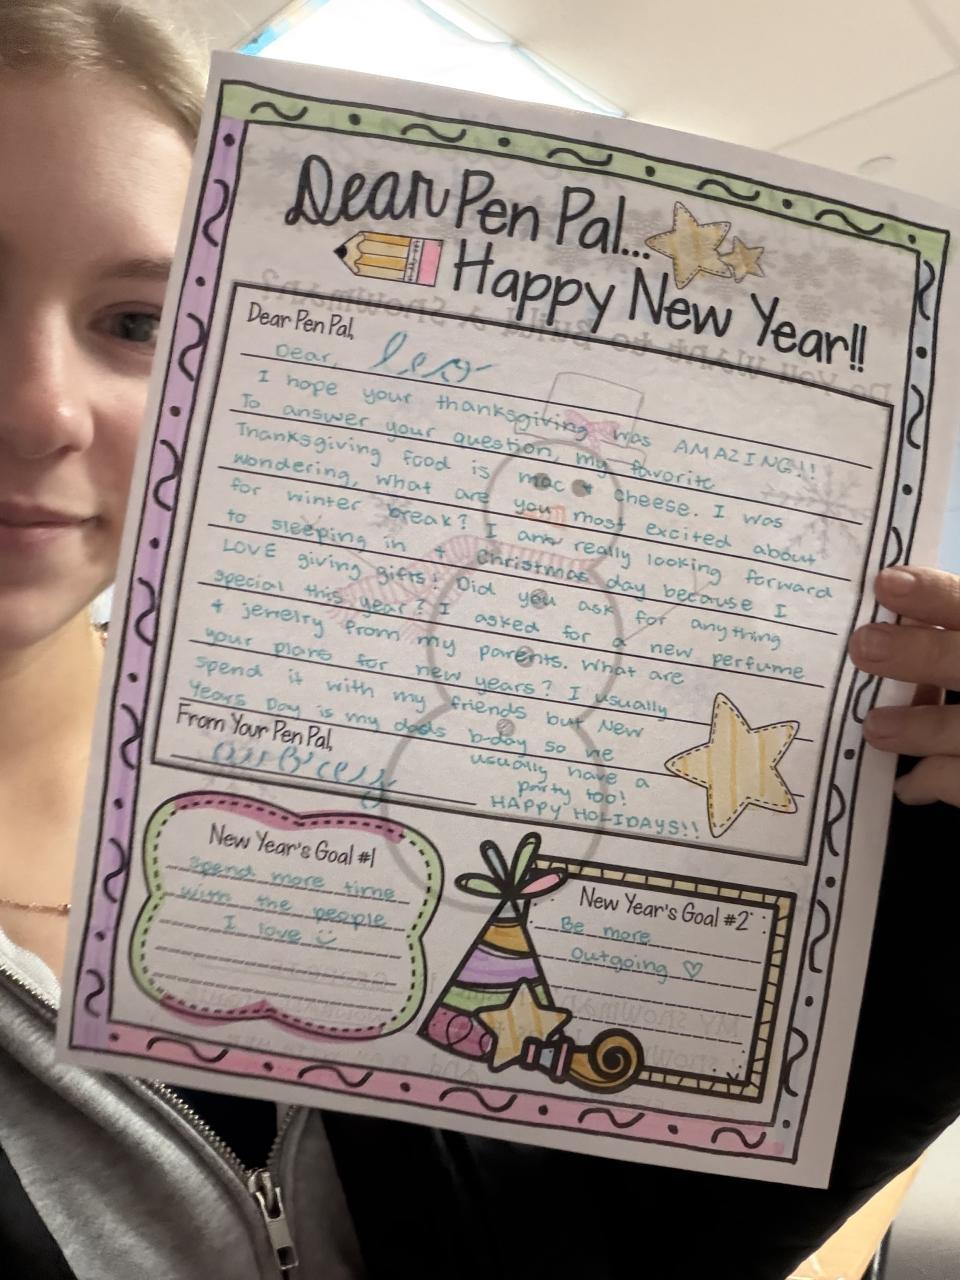 Dear Pen Pal...
Happy New Year!!
Dear Pen Pal,
Dear, leo
I hope your thanksgiving was AMAZING!!
To answer your question, my favorite
Thanksgiving food is mac + cheese. I was
wondering, what are you most excited about
for winter break? I am really looking forward
to sleeping in + Christmas day because I
LOVE giving gifts! Did you ask for anything
special this year? I asked for a new perfume
+ jewelry from my parents. What are
your plans for new years? I usually
spend it with my friends but New
Years Day is my dads b-day so we
usually have a
party too!
HAPPY HOLIDAYS!!
From Your Pen Pal,
New Year's Goal #1
Spend more time
with the people
I love
New Year's Goal #2
Be more
Outgoing ♡
Do you want to build a snowman?